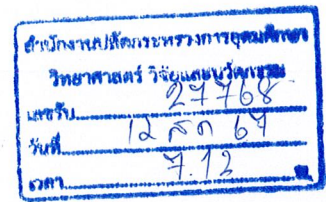 สำนักงานปลัดกระทรวงการอุดมศึกษา
วิทยาศาสตร์ วิจัยและนวัตกรรม
เลขรับ 27768
วันที่ 12 สค 67
เวลา 7.12 น.